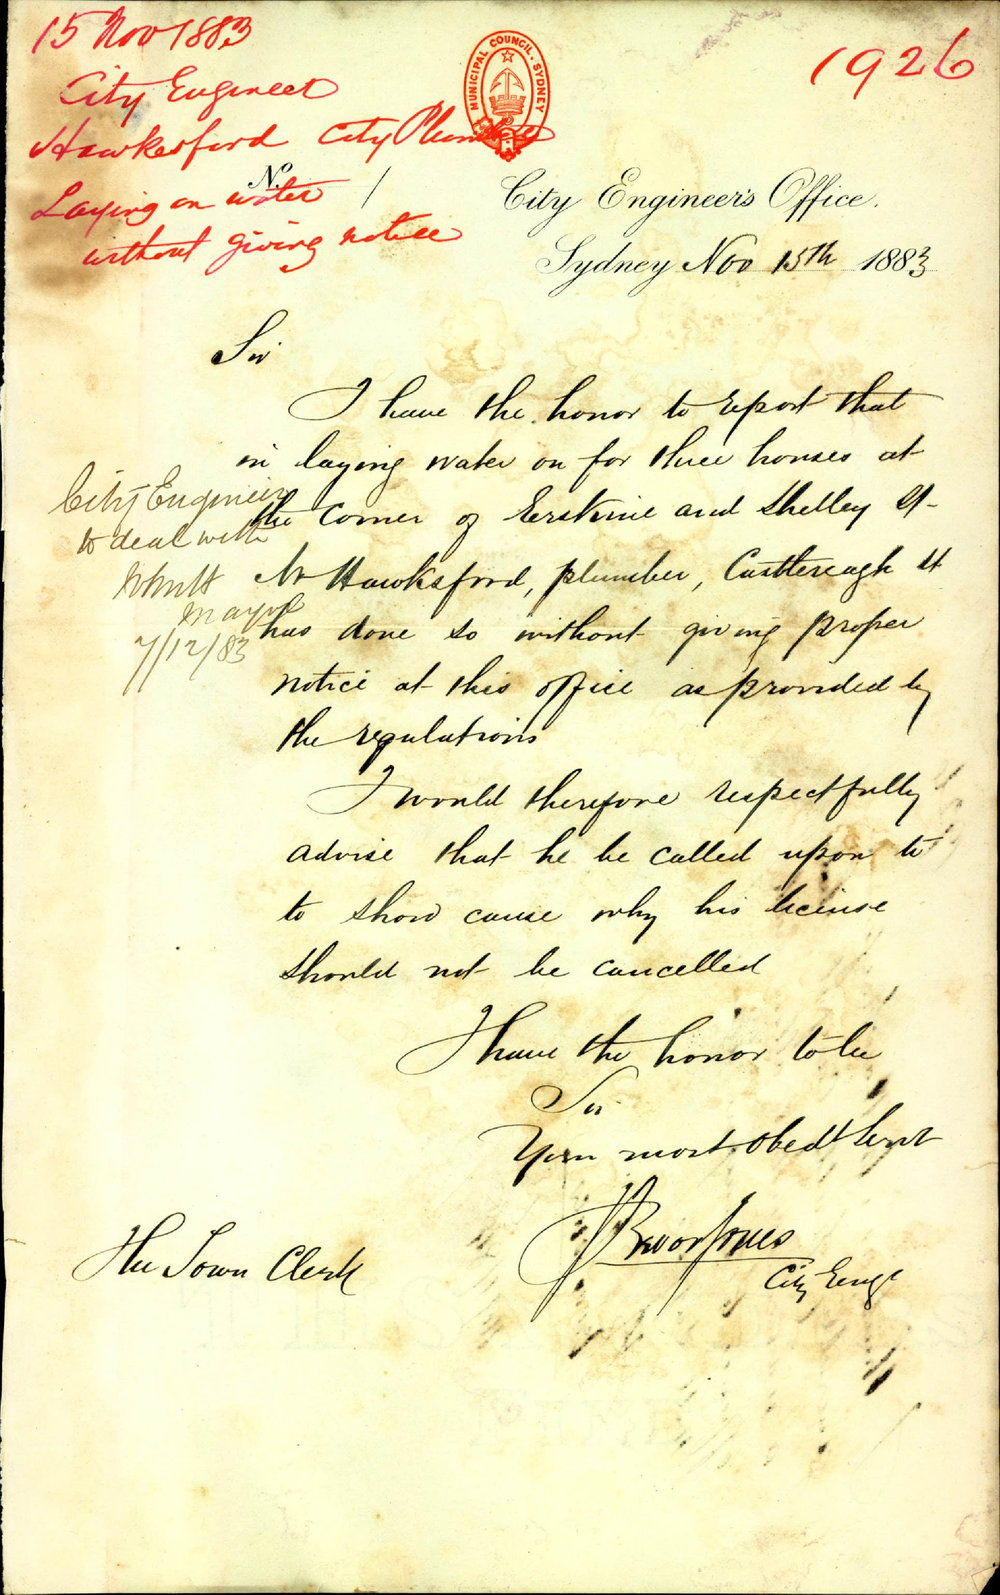 15 Nov 1883
City Engineer
Hawkesford City Plumber
Laying on water
without giving notice
1926
MUNICIPAL COUNCIL. SYDNEY
No. /
City Engineer's Office.
Sydney Nov 15th 1883
Sir
I have the honor to report that
in laying water on for three houses at
the corner of Erskine and Shelley St
Mr Hawksford, plumber, Castlereagh St
has done so without giving proper
notice at this office as provided by
the regulations
I would therefore respectfully
advise that he be called upon to
to show cause why his license
should not be cancelled
I have the honor to be
Sir
Your most obedt Servt
Trevor Jones
City Engr
The Town Clerk
City Engineer
to deal with
Mayor
7/12/83